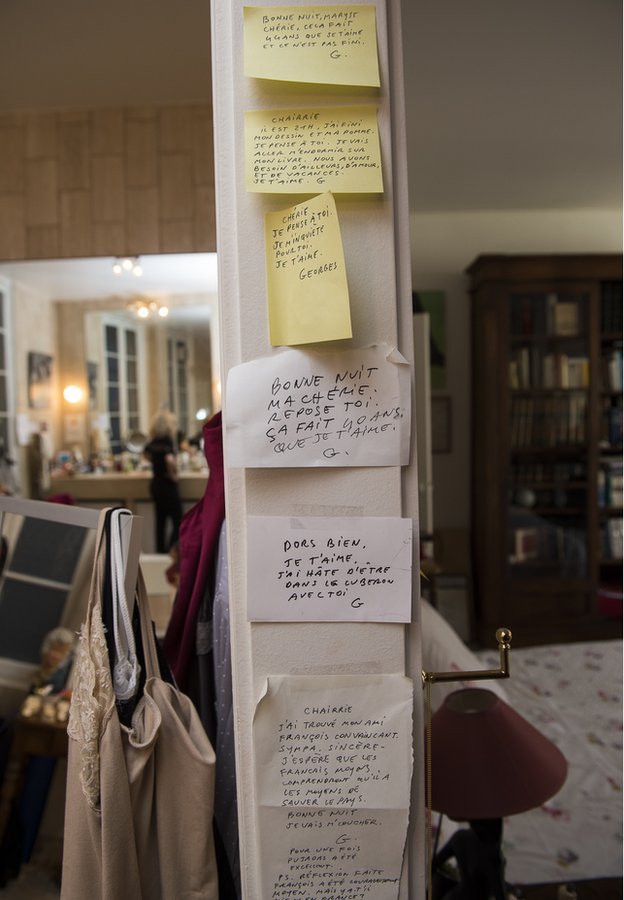 BONNE NUIT, MARYSE
CHÉRIE, CELA FAIT
44 ANS QUE JE T'AIME
ET CE N'EST PAS FINI.
G.
CHAIRRIE
IL EST 21H, J'AI FINI
MON DESSIN ET MA POMME.
JE PENSE À TOI. JE VAIS
ALLER M'ENDORMIR SUR
MON LIVRE. NOUS AVONS
BESOIN D'AILLEURS, D'AMOUR,
ET DE VACANCES.
JE T'AIME. G
CHÉRIE
JE PENSE À TOI.
JE M'INQUIÈTE
POUR TOI.
JE T'AIME.
GEORGES
BONNE NUIT
MA CHÉRIE.
REPOSE TOI.
ÇA FAIT 40 ANS
QUE JE T'AIME.
G.
DORS BIEN,
JE T'AIME,
J'AI HÂTE D'ÊTRE
DANS LE LUBERON
AVEC TOI
G
CHAIRRIE
J'AI TROUVÉ MON AMI
FRANÇOIS CONVAINCANT.
SYMPA. SINCÈRE-
J'ESPÈRE QUE LES
FRANCAIS MOYENS
COMPRENDRONT QU'IL A
LES MOYENS DE
SAUVER LE PAYS.
BONNE NUIT
JE VAIS M'COUCHER.
G.
POUR UNE FOIS
PUJADAS A ÉTÉ
EXCELLENT.
PS. RÉFLEXION FAITE
FRANÇOIS A ÉTÉ
MOYEN. MAIS Y A T'IL